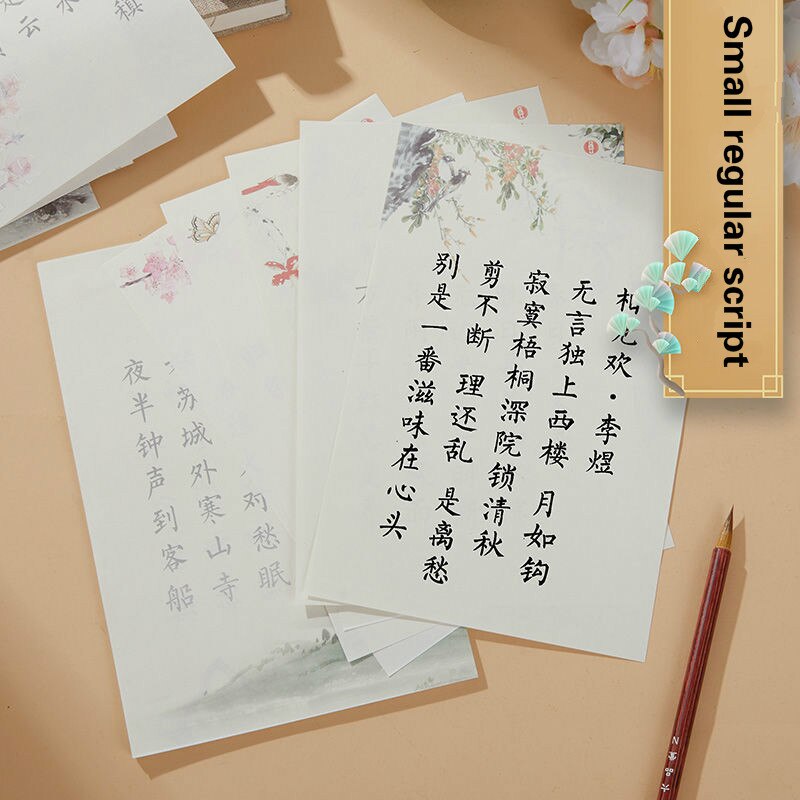 Small regular script
欢·李煜
无言独上西楼 月如钩
寂寞梧桐深院锁清秋
剪不断 理还乱 是离愁
别是一番滋味在心头
对愁眠
苏城外寒山寺
夜半钟声到客船
云
六品堂 N